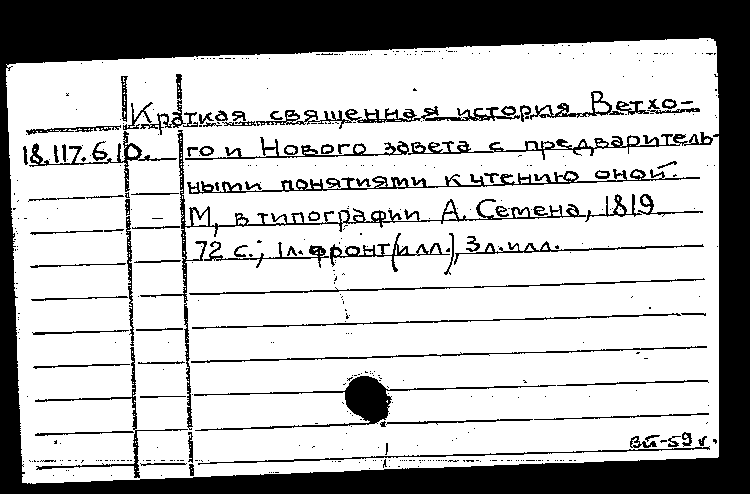 Краткая священная история Ветхо-
18.117.6.10. го и Нового завета с предваритель-
ными понятиями к чтению оной.
М, в типографии А. Семена, 1819
72 с.; 1л. фронт(илл.), 3л. илл.
ВЙ-59г.